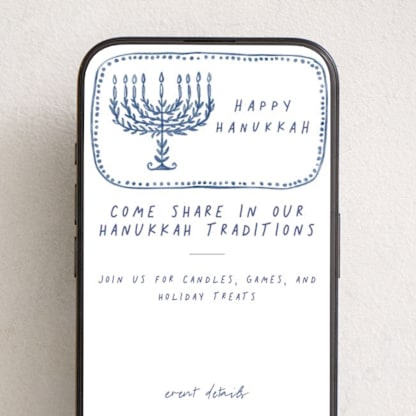 HAPPY
HANUKKAH
COME SHARE IN OUR
HANUKKAH TRADITIONS
JOIN US FOR CANDLES, GAMES, AND
HOLIDAY TREATS
event details